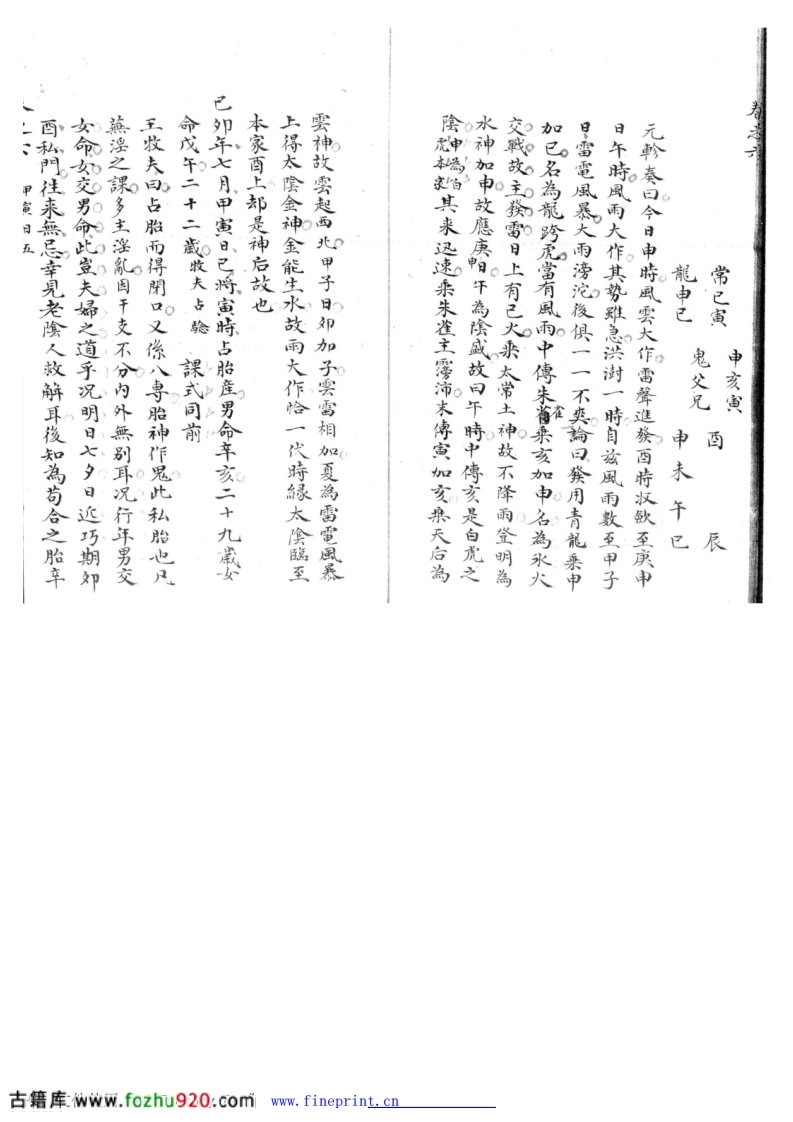 卷之六
申亥寅
常巳寅 鬼父兄 酉 辰
龍申巳 申未午巳
元軫奏曰今日申時風雲大作雷聲進發酉時収歛至庚申
日午時風雨大作其勢雖急洪澍一時自兹風雨數至甲子
日雷電風暴大雨滂沱後俱一一不爽論曰發用青龍乘申
加巳名為龍跨虎當有風雨中傳朱雀乘亥加申名為氷火
交戰故主發雷日上有巳火乘太常土神故不降雨登明為
水神加申故應庚申日午為陰盛故曰午時中傳亥是白虎之
陰申為白虎本家其来迅速乘朱雀主霶沛末傳寅加亥乘天后為
雲神故雲起西北甲子日卯加子雲雷相加夏為雷電風暴
上得太陰金神金能生水故雨大作恰一代時緣太陰臨至
本家酉上却是神后故也
己卯年七月甲寅日巳將寅時占胎産男命辛亥二十九歲女
命戊午二十二歲牧夫占驗 課式同前
王牧夫曰占胎而得閉口又係八専胎神作鬼此私胎也凡
蕪淫之課多主淫亂因干支不分内外無别耳况行年男交
女命女交男命此豈夫婦之道乎况明日七夕日近巧期卯
酉私門往来無忌幸見老陰人救解耳後知為苟合之胎辛
甲寅日五
古籍库 www.fozhu920.com
www.fineprint.cn